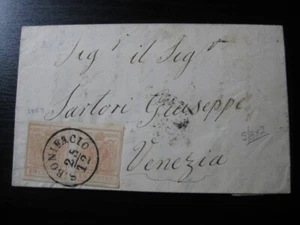 Sig.r il Sig.r
Sartori Giuseppe
Venezia
S. BONIFACIO
25
12